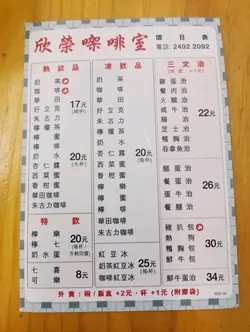 欣榮㗎啡室
價目表
電話 2492 2092
熱飲品
奶茶
咖啡
華田
好立克
朱古力
檸檬茶
檸啡
檸水
杏仁露
菜蜜
西菜蜜
香柑蜜
華咖啡
朱古力咖啡
17元
(每杯)
20元
(每杯)
特飲
檸樂
檸七
鮮奶
20元
冷熱同價
七喜
可樂
8元
凍飲品
奶茶
咖啡
華田
好立克
朱古力
檸檬茶
檸啡
檸水
奶水
杏仁露
西菜蜜
香柑蜜
華田咖啡
朱古力咖啡
檸樂
檸七
鮮奶
20元
(每杯)
紅豆冰
奶茶紅豆冰
咖啡紅豆冰
25元
(每杯)
三文治
(烘底 +1元)
雞蛋治
餐肉治
火腿治
鹹牛治
腸仔治
芝士治
鴨胸治
吞拿魚治
22元
腿蛋治
餐蛋治
鮮牛治
26元
豬扒包
熱狗
鴨胸包
30元
鮮牛蛋治
34元
外賣：碗/飯盒 +2元，杯 +1元 (附膠袋)